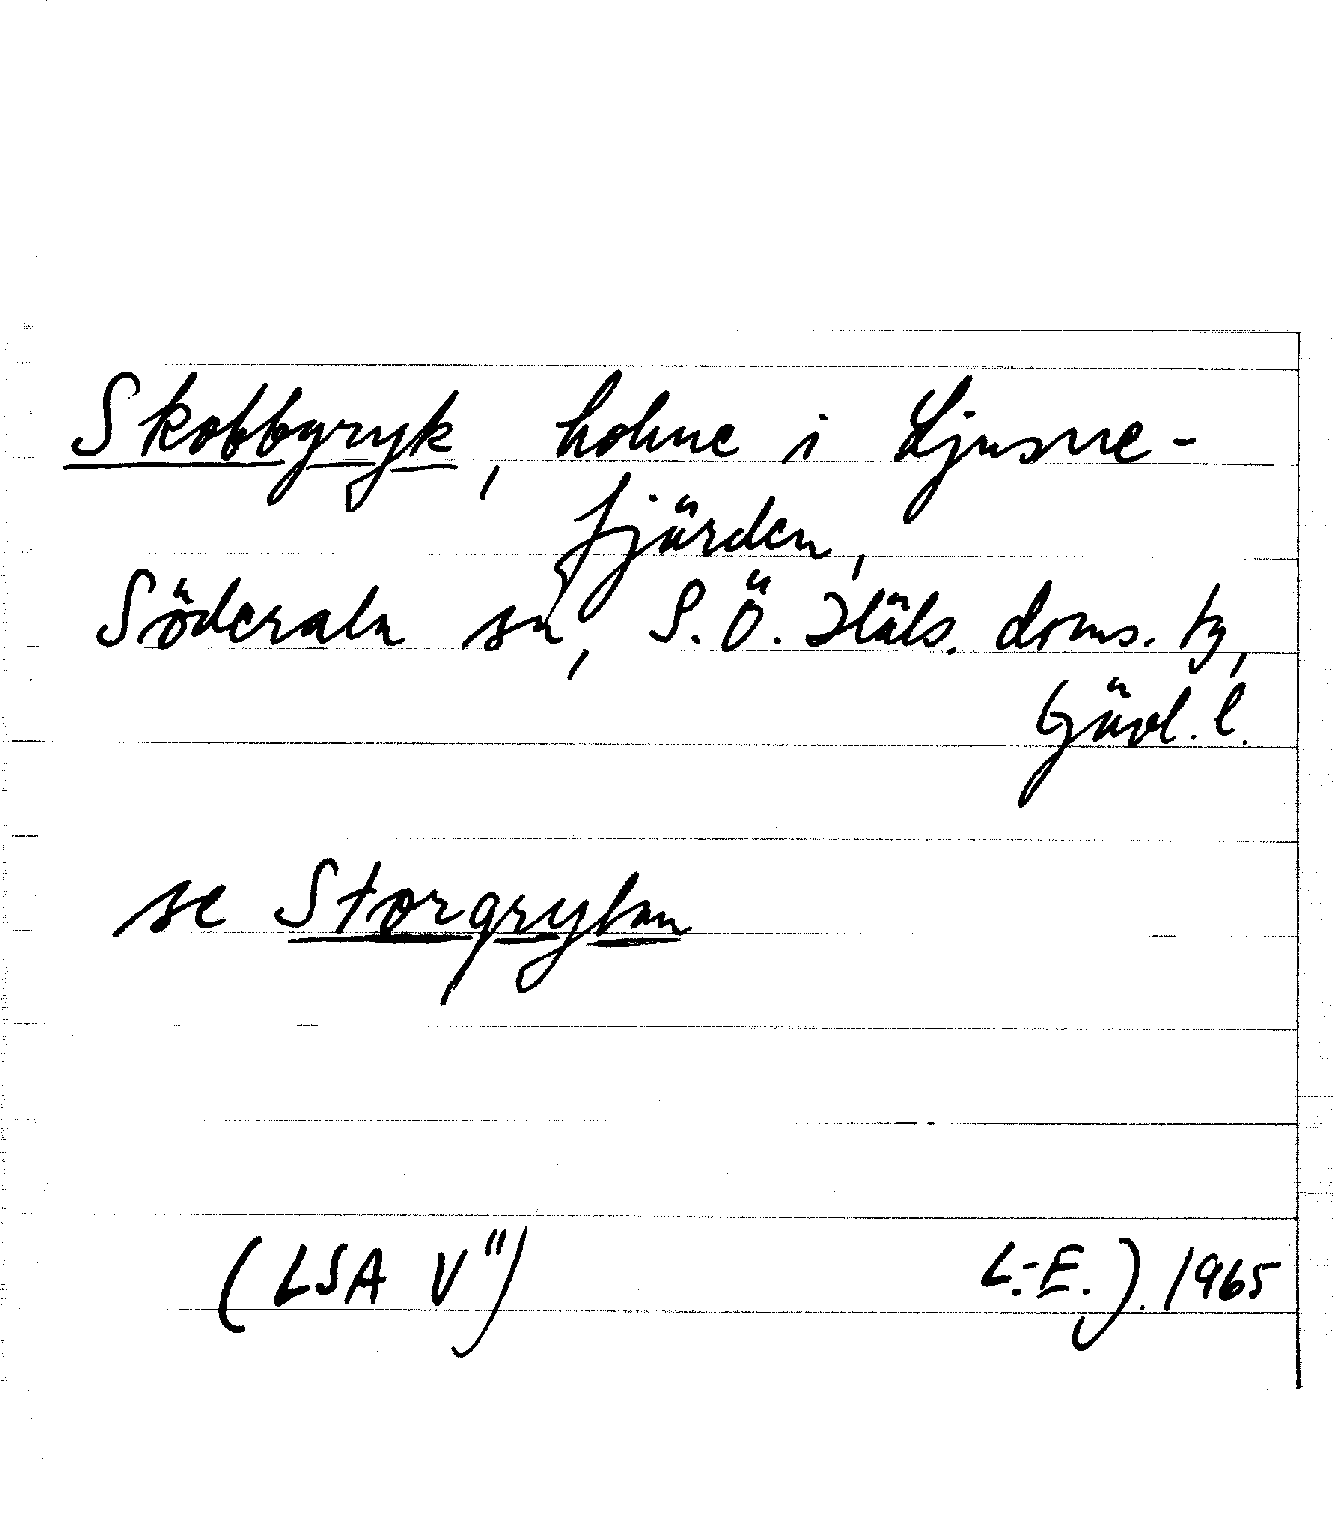 Skobbgryk, holme i Ljusne-
fjärden,
Söderala sn, S.Ö. Häls. doms. tg,
Gävl. l.
se Storgrytan
(LSA V") L.-E. J. 1965